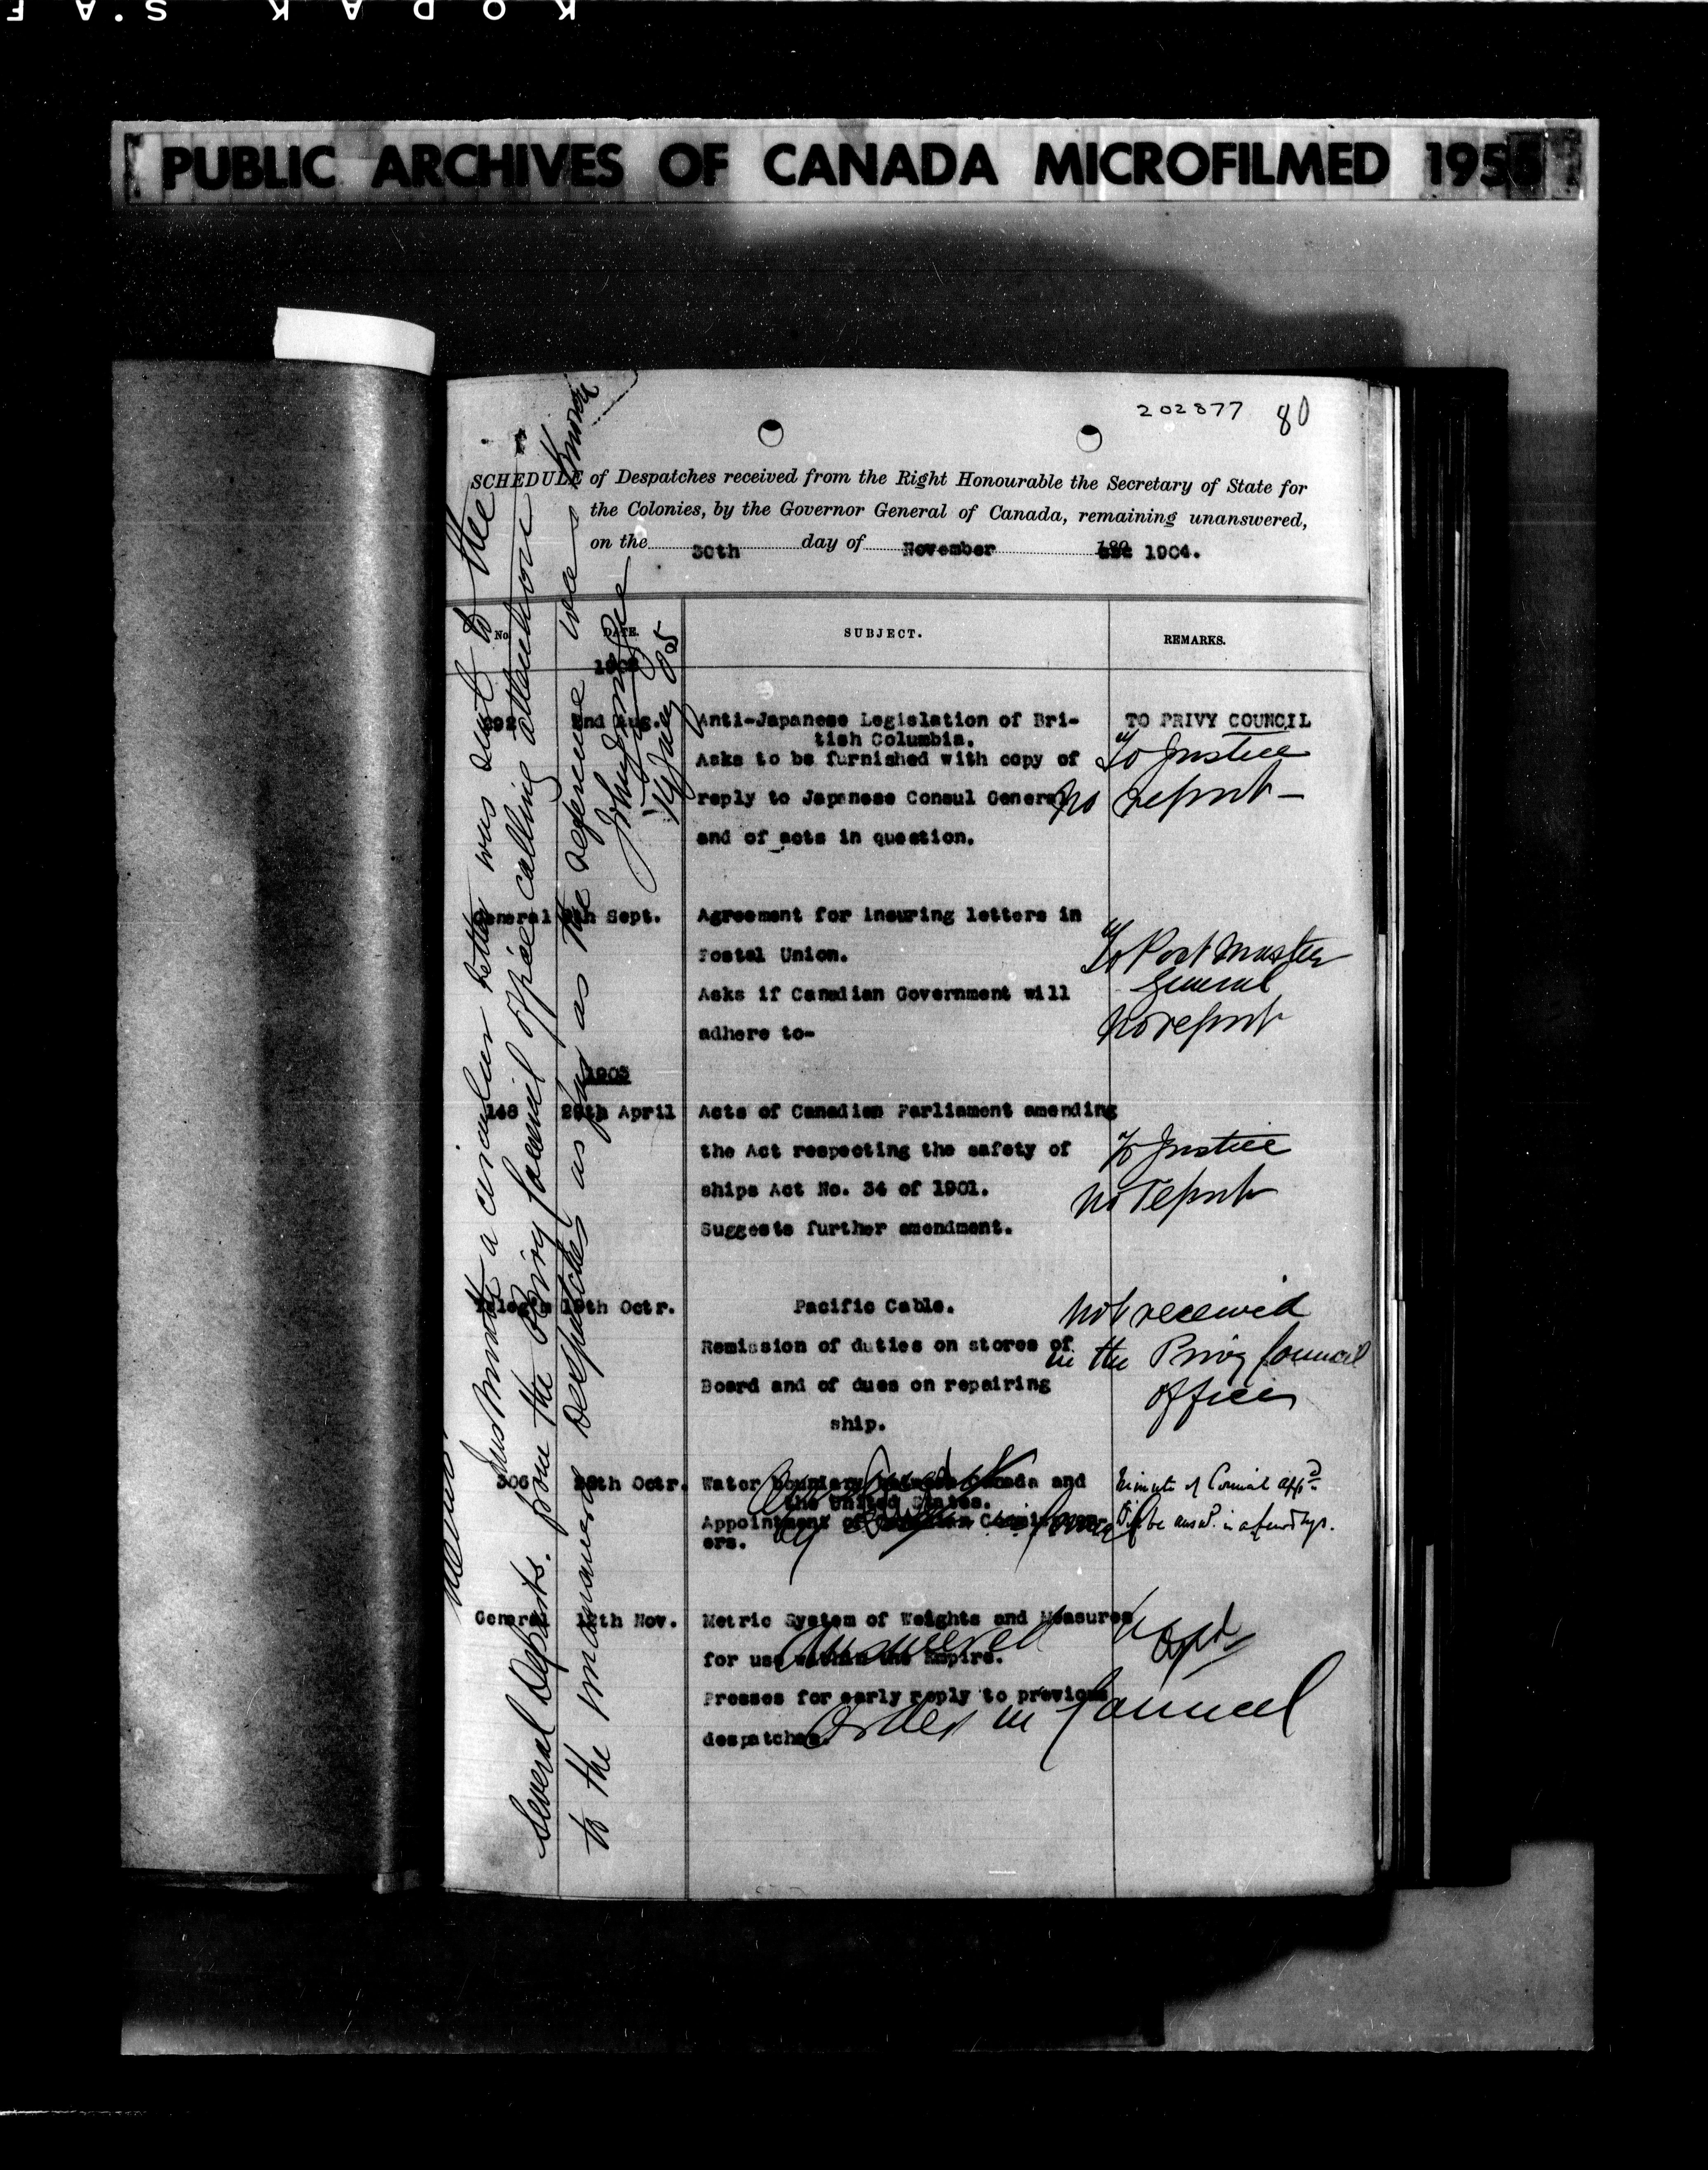 KODAK S.A F
PUBLIC ARCHIVES OF CANADA MICROFILMED 195
202877 80
SCHEDULE of Despatches received from the Right Honourable the Secretary of State for
the Colonies, by the Governor General of Canada, remaining unanswered,
on the 30th day of November 1904.
No. DATE. SUBJECT. REMARKS.
2nd Aug. Anti-Japanese Legislation of Bri- TO PRIVY COUNCIL
tish Columbia.
Asks to be furnished with copy of To Justice
reply to Japanese Consul General No report —
and of acts in question.
General Sept. Agreement for insuring letters in
Postal Union. To Post Master
Asks if Canadian Government will General
adhere to- No report
1903
148 29th April Acts of Canadian Parliament amending
the Act respecting the safety of To Justice
ships Act No. 34 of 1901. No report
Suggests further amendment.
Telegm 19th Octr. Pacific Cable. Not received
Remission of duties on stores of in the Privy Council
Board and of dues on repairing office
ship.
306 Octr. Water Boundary between Canada and Minute of Council appd
the United States.
Appointment of Canadian Commission- be ansd. in a few days.
ers.
General Nov. Metric System of Weights and Measures
Answered
for use within the Empire.
Presses for early reply to previous
Order in Council
despatches.
a circular letter was sent to the
several Departs. from the Privy Council office calling attention
to the unanswered despatches as far as the reference was known
John J McGee